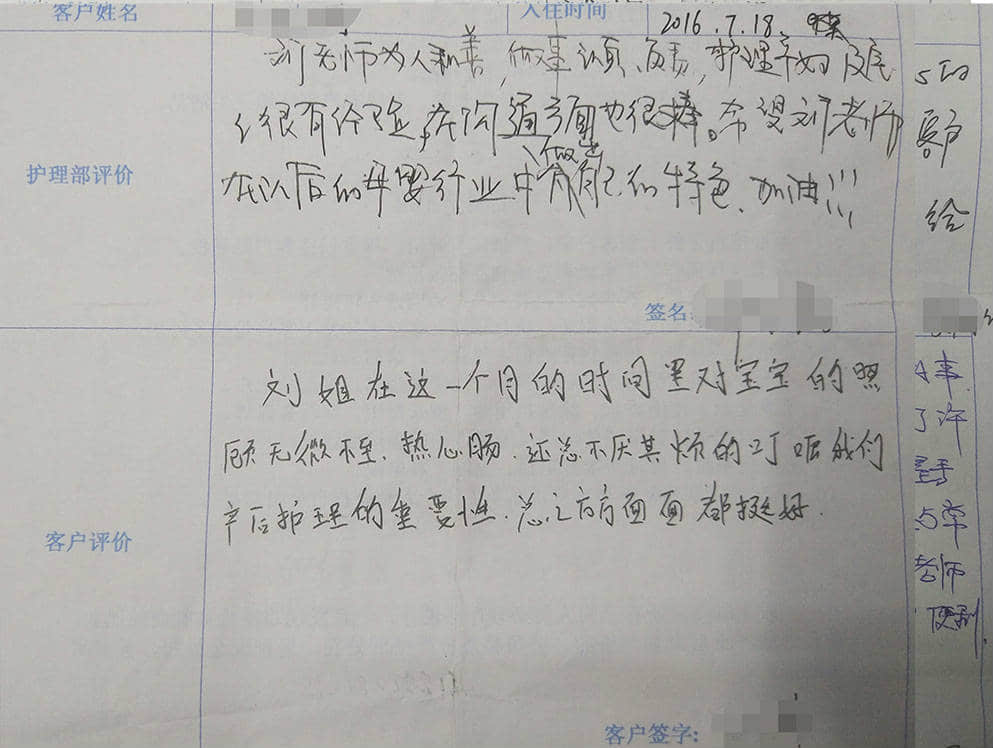 客户姓名 入住时间 2016.7.18.
护理部评价
刘老师为人和善,做事认真、负责,护理产妇及宝
宝很有经验,在沟通方面也很棒。希望刘老师
在以后的母婴行业中做出有自己的特色、加油!!!
签名:
客户评价
刘姐在这一个月的时间里对宝宝的照
顾无微不至、热心肠.还总不厌其烦的叮嘱我们
产后护理的重要性.总之方方面面都挺好.
客户签字:
客户
给
事
了许
老师